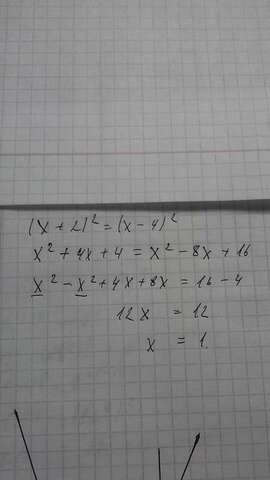 (x + 2)² = (x - 4)²
x² + 4x + 4 = x² - 8x + 16
x² - x² + 4x + 8x = 16 - 4
12x = 12
x = 1.